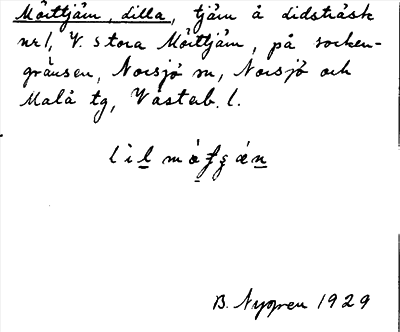 Mörttjärn, lilla, tjärn å Lidsträsk
nr 1, V. Stora Mörttjärn, på socken-
gränsen, Norsjö sn, Norsjö och
Malå tg, Västerb. l.
B. Nygren 1929